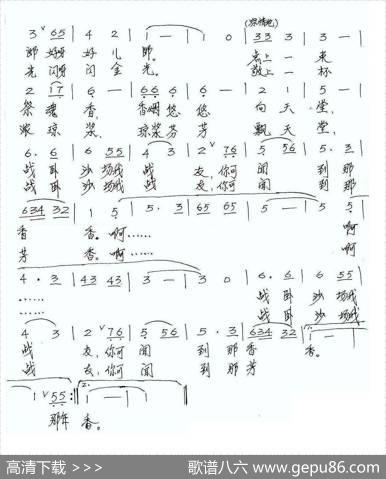 3ˇ65 | 4 2 | 1 — | 1 0 | (深情地) 33 3 | 3 — |
郎 好 儿 郎。 点上 一 束
光 闪 闪 金 光。 敬上 一 杯
2 17 | 6 — | 66 6 | 6 — | 2 1 | 5 — |
祭 魂 香, 香烟 悠 悠 向 天 堂,
浓 琼 浆, 琼浆 芬 芳 飘 天 堂,
6. 6 | 6 55 | 4 3 | 2ˇ76 | 5 56 | 5. 3 |
战 卧 沙 场战 战 友,你可 闻 到那
战 卧 沙 场战 战 友,你可 闻 到那
634 32 | 1 5 | 5. 3 | 65 65 | 5 — | 5 5 |
香 香。啊…… 啊
芳 香。啊…… 啊
4. 3 | 43 43 | 3 — | 3 0 | 6. 6 | 6 55 |
…… 战 卧 沙 场战
…… 战 卧 沙 场战
4 3 | 2ˇ76 | 5 56 | 5. 3 | 634 32 | 1. 1 — |
战 友,你可 闻 到 那 香 香。
战 友,你可 闻 到 那 芳
1ˇ55 :‖ 2. 1 — | 1 — ‖
那年 香。
高清下载 >>>
歌谱八六 www.gepu86.com